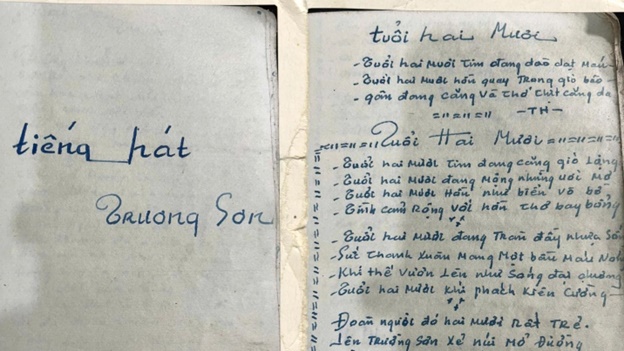 tiếng hát
Trường Sơn
tuổi hai Mươi
- Tuổi hai Mươi tim đang dào dạt Máu
- Tuổi hai Mươi hồn quay Trong gió bão -
- gân đang căng Và thớ thịt căng da
= " = " = " -TH-
= " = " = " = Tuổi Hai Mươi = " = " = " = "
- Tuổi hai Mươi tim đang căng gió Lộng
- Tuổi hai Mươi đang Mộng những ước Mơ
- Tuổi hai Mươi Hồn như biển Vô bờ
- Tình cảm Rộng Với hồn thơ bay bổng
- Tuổi hai Mươi đang Tràn đầy nhựa Sống
- Sức Thanh Xuân Mang Một bầu Máu
- Khí thế Vươn Lên như Sóng đại dương
- Tuổi hai Mươi Khí phách Kiên Cường -
Đoàn người đó hai Mươi Rất Trẻ.
Lên Trường Sơn Xẻ núi Mở Đường